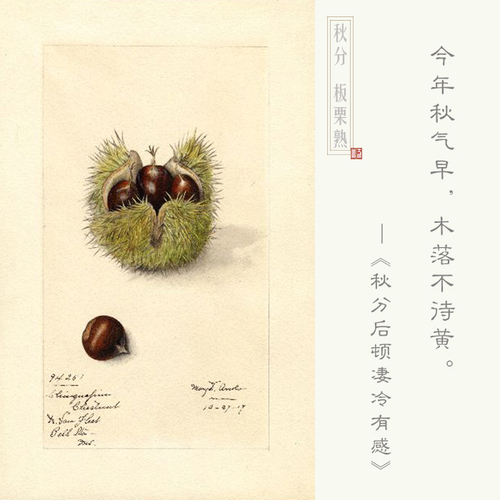 秋分 板栗熟
今年秋气早，木落不待黄。
—《秋分后顿凄冷有感》
94251
Chinquapin
Chestnut
W. Van Fleet
Bell Sta-
Md.
10-27-19